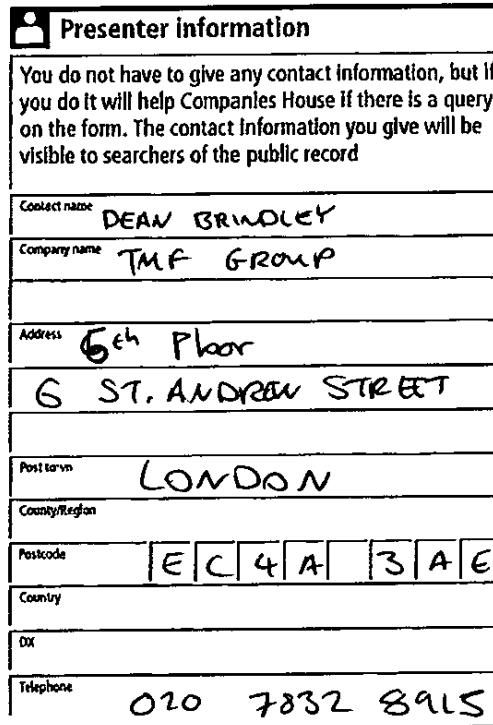 Presenter information
You do not have to give any contact information, but if
you do it will help Companies House if there is a query
on the form. The contact information you give will be
visible to searchers of the public record
Contact name DEAN BRINDLEY
Company name TMF GROUP
Address 6th Floor
6 ST. ANDREW STREET
Post town LONDON
County/Region
Postcode EC4A 3AE
Country
DX
Telephone 020 7832 8915